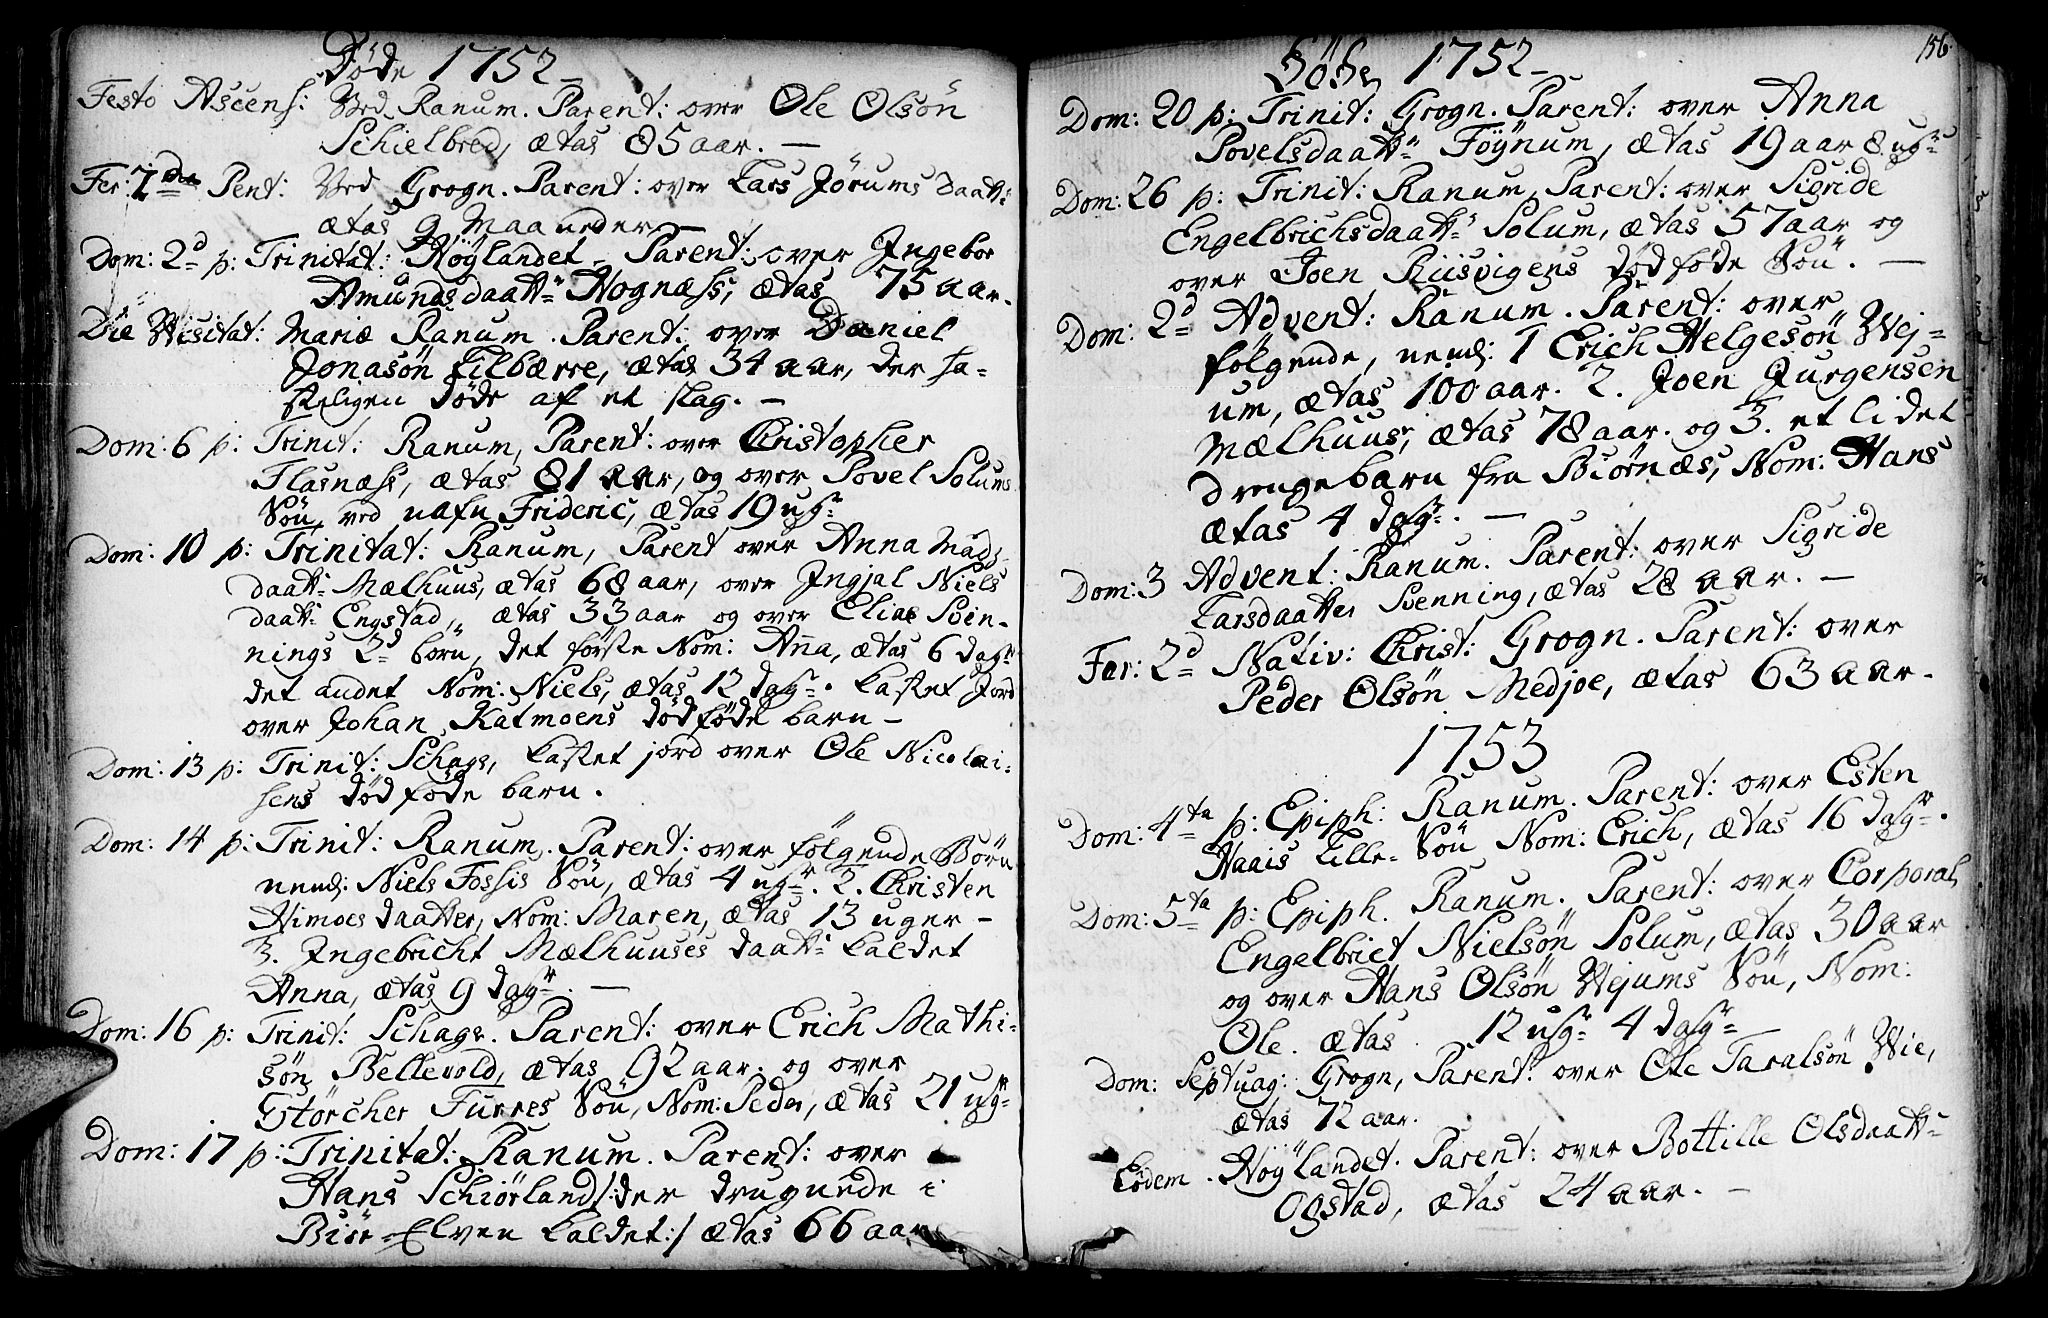 Døde 1752
Festo Ascens: Ved Ranum. Parent: over Ole Olsøn
Schielbred, ætas 85 aar. —
Fer: 2da Pent: Ved Grogn. Parent: over Lars Jørums Daatt:
ætas 9 Maaneder —
Dom: 2d p: Trinitat: Höylandet. Parent: over Ingebor
Amundsdaatt: Hognæss, ætas 75 aar.
Die Visitat: Mariæ Ranum. Parent: over Daniel
Jonasön Lilbærre, ætas 34 aar, der ha-
steligen døde af et slag. —
Dom: 6 p: Trinit: Ranum, Parent: over Christopher
Flasnæss, ætas 81 aar, og over Povel Solums
Søn, ved nafn Frideric, ætas 19 ugr
Dom: 10 p: Trinitat: Ranum, Parent over Anna Mads-
daatt: Mælhuus, ætas 68 aar, over Ingjal Niels
daatt: Engstad, ætas 33 aar og over Elias Svin-
nings 2d börn, det første Nom: Anna, ætas 6 dagr
det andet Nom: Niels, ætas 12 dagr. Kastet Jord
over Johan Katmoens dödföde barn —
Dom: 13 p: Trinit: Schags, kastet jord over Ole Nicolai-
sens död föde barn.
Dom: 14 p: Trinit: Ranum. Parent: over følgende Börn
neml: Niels Fossis Sön, ætas 4 ugr. 2. Christen
Himoes daatter, Nom: Maren, ætas 13 uger —
3. Ingebricht Mælhuuses daatt: kaldet
Anna, ætas 9 dagr. —
Dom: 16 p: Trinit: Schage. Parent: over Erich Mathi-
sön Bellevold, ætas 92 aar. og over
Størcher Furres Søn, Nom: Peder, ætas 21 ugr
Dom: 17 p: Trinitat: Ranum. Parent: over
Hans Schiörland /: der drugnede i
Biör-Elven kaldet :/ ætas 66 aar
156
Døde 1752
Dom: 20 p: Trinit: Grogn. Parent: over Anna
Povelsdaatt: Föynum, ætas 19 aar 8 ugr
Dom: 26 p: Trinit: Ranum, Parent: over Sigride
Engelbrichsdaatt: Solum, ætas 57 aar og
over Joen Riisvigens dødføde Søn. —
Dom: 2d Advent: Ranum. Parent: over
følgende, neml: 1 Erich Helgesøn Vej-
um, ætas 100 aar. 2. Joen Jurgensen
Mælhuus, ætas 78 aar. og 3. et lidet
drengebarn fra Biörnæs, Nom: Hans
ætas 4 dagr. —
Dom: 3 Advent: Ranum. Parent: over Sigride
Larsdaatter Svenning, ætas 28 aar. —
Fer: 2d Nativ: Christ: Grogn. Parent: over
Peder Olsön Medjoe, ætas 63 aar.
1753
Dom: 4ta p: Epiph: Ranum. Parent: over Esten
Haais Lille-Søn Nom: Erich, ætas 16 dagr.
Dom: 5ta p: Epiph. Ranum. Parent: over Corporal
Engelbrict Nielsön Solum, ætas 30 aar
og over Hans Olsøn Vejums Søn, Nom:
Ole. ætas 12 ugr 4 dagr —
Dom: Septuag: Grogn, Parent: over Ole Taralsön Vie,
ætas 72 aar.
Eodem. Höylandet. Parent: over Bottille Olsdaatt:
Ogstad, ætas 24 aar. —